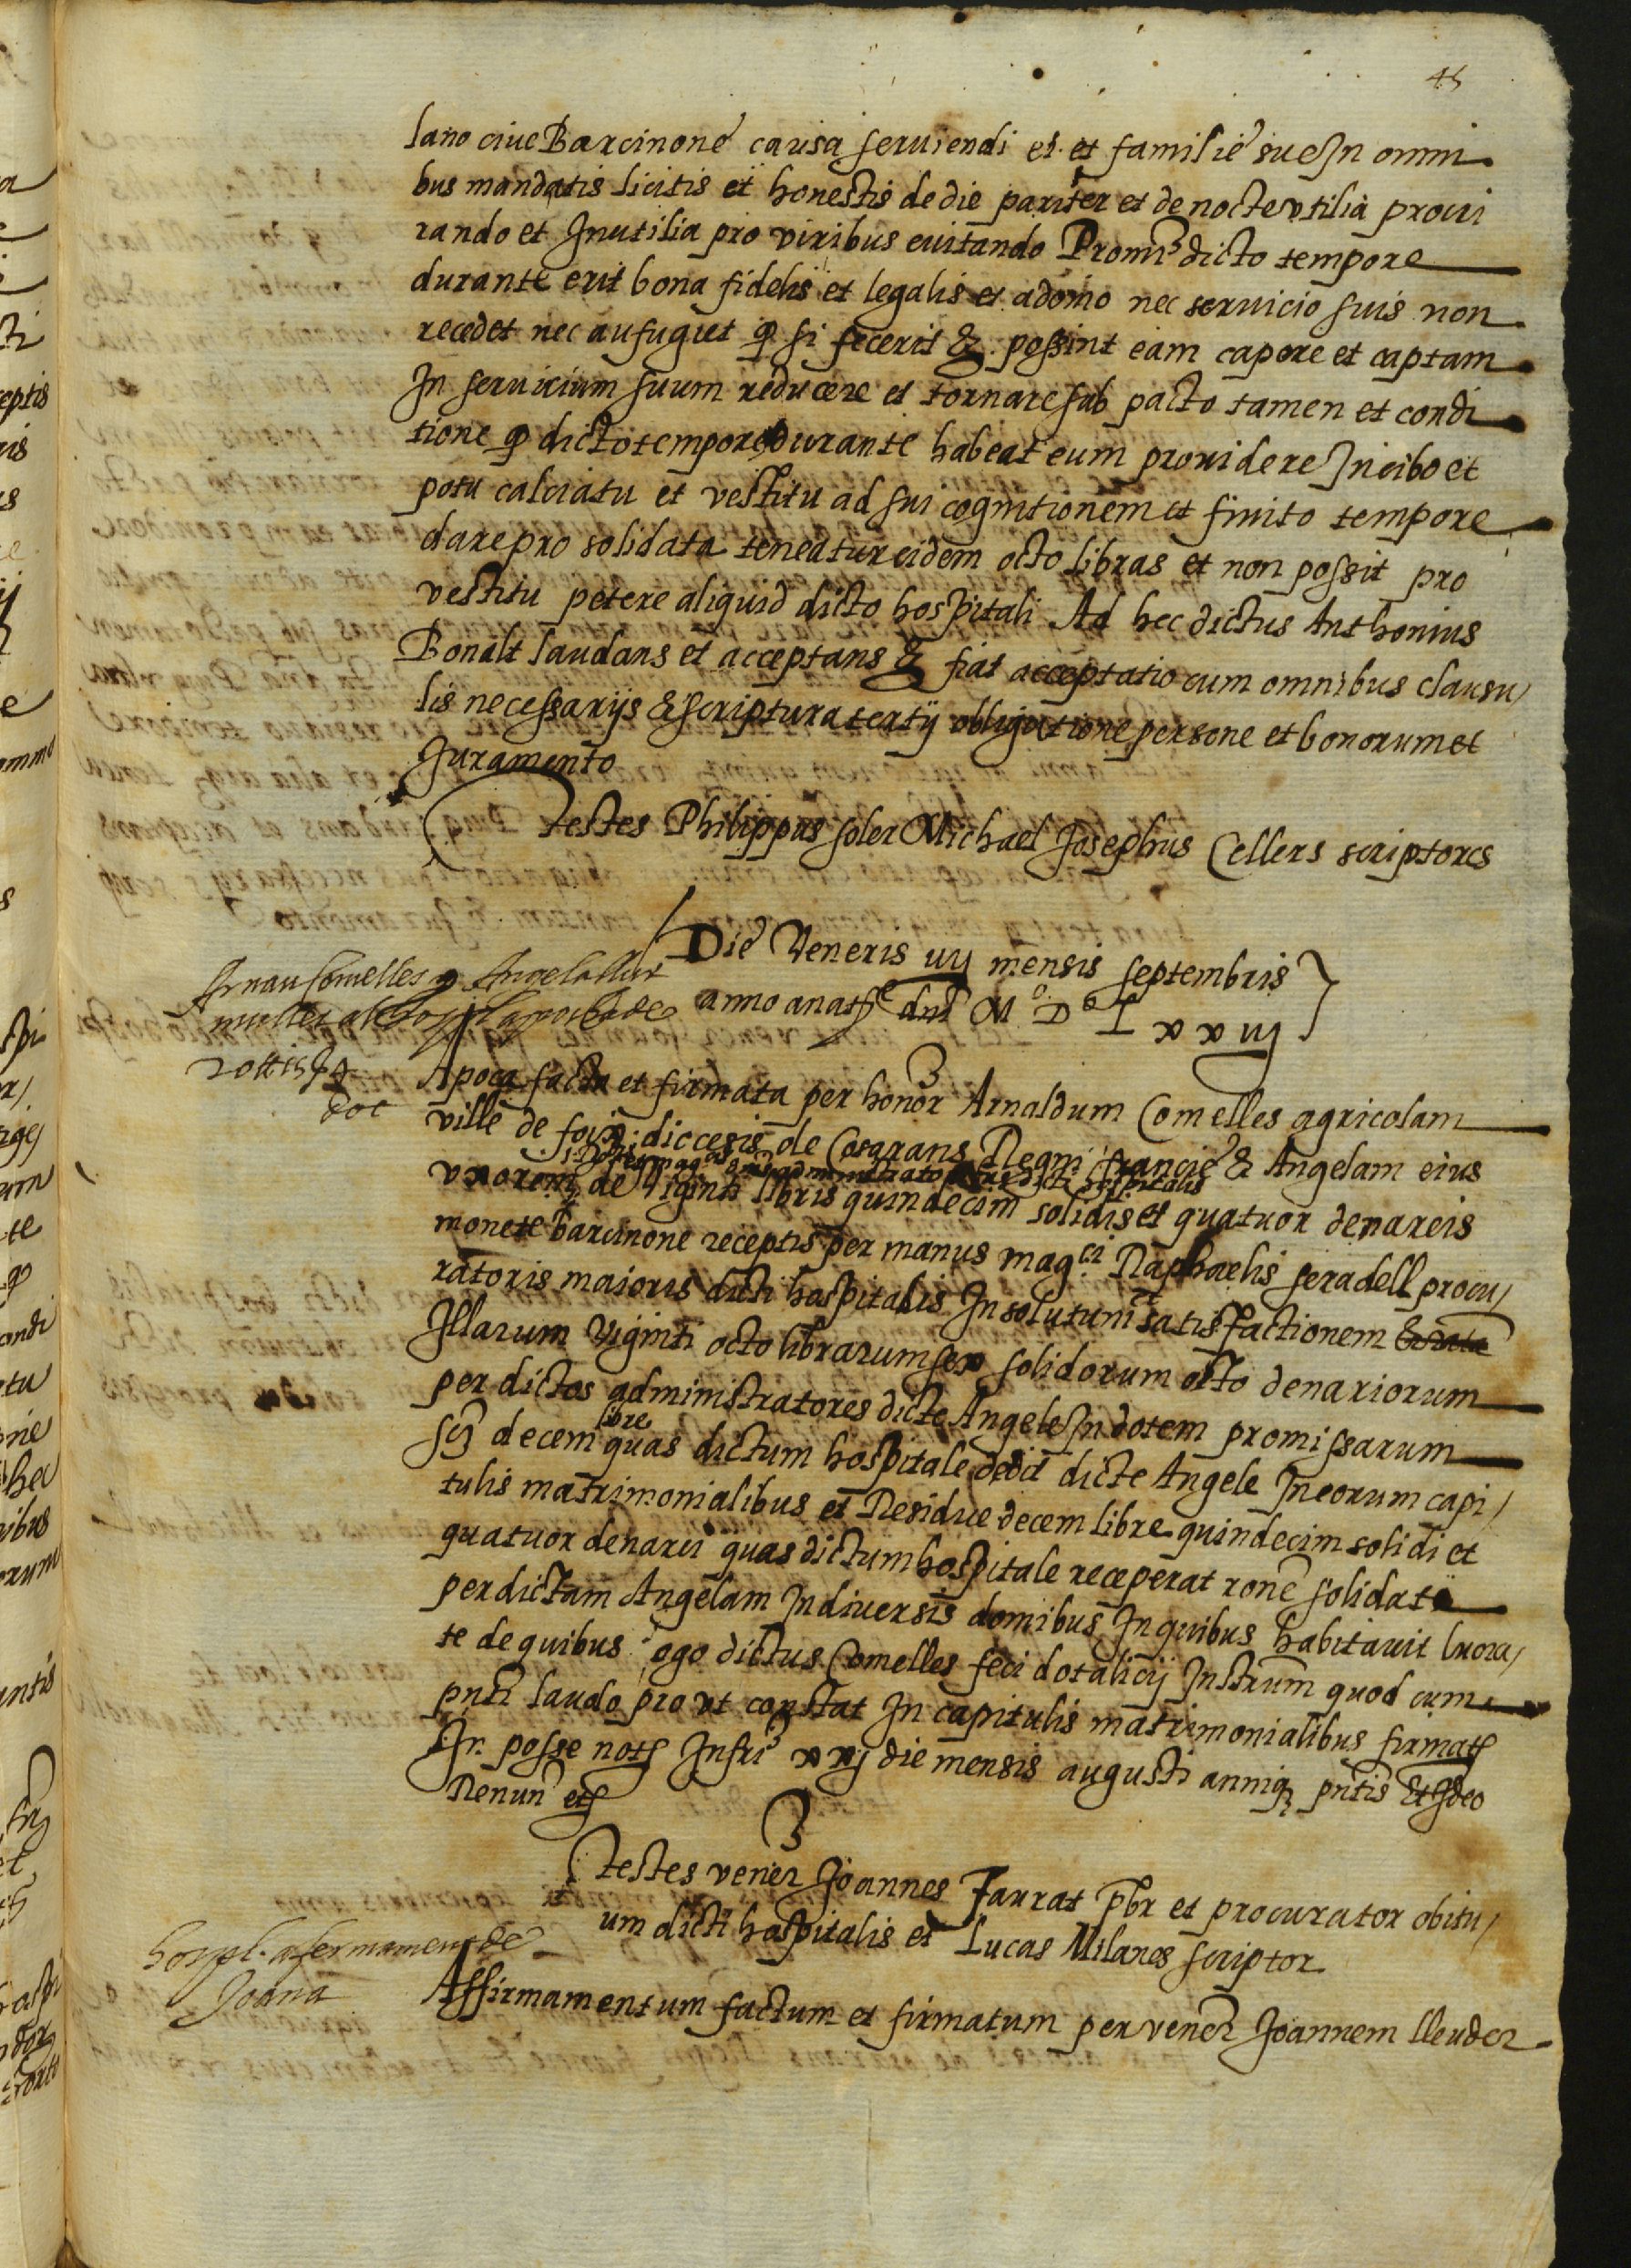 45
lano cive Barcinone causa serviendi ei et familie sue In omni
bus mandatis licitis et honestis de die pariter et de nocte utilia procu
rando et Inutilia pro viribus evitando Promi dicto tempore
durante erit bona fidelis et legalis et a domo nec servicio suis non
recedet nec aufugiet q si fecerit & possint eam capere et captam
In servicium suum reducere et tornare sub pacto tamen et condi
tione q dicto tempore durante habeat eum providere In cibo et
potu calciatu et vestitu ad sui cognitionem et finito tempore
dare pro solidata teneatur eidem octo libras et non possit pro
vestitu petere aliquid dicto hospitali Ad hec dictus Anthonius
Bonalt laudans et acceptans & fiat acceptatio cum omnibus clausu/
lis necessarijs & scriptura tertij obligatione persone et bonorum et
Juramento
Testes Philippus soler Michael Josephus Cellers scriptores
Die Veneris iiij mensis septembris
anno a nat dni M D L xx iij
Arnau Comelles y Angela
muller al hospl apocha de
Apoca facta et firmata per honor Arnaldum Comelles agricolam
ville de foix diocesis de Cosarans Regni francie & Angelam eius
uxorem de viginti libris quindecim solidis et quatuor denareis
monete Barcinone receptis per manus magci Raphaelis seradell procu/
ratoris maioris dicti hospitalis In solutum et satisfactionem
Illarum viginti octo librarum sex solidorum octo denariorum
per dictos administratores dicte Angele In dotem promissarum
decem libre quas dictum hospitale dedit dicte Angele In eorum capi/
tulis matrimonialibus et Residue decem libre quindecim solidi et
quatuor denarii quas dictum hospitale receperat rone solidate
per dictam Angelam In diversis domibus In quibus habitavit lucra/
te de quibus ego dictus Comelles feci dotalicij Instrum quod cum
pnti laudo pro ut constat In capitulis matrimonialibus firmats
In posse nots Infri xxj die mensis augusti anniq pntis Et Ideo
Renun ets
Testes vener Joannes Faurat pbr et procurator obitu/
um dicti hospitalis et Lucas Milanes scriptor
hospl. afermament de
Joana
Affirmamentum factum et firmatum per vener Joannem lleuder